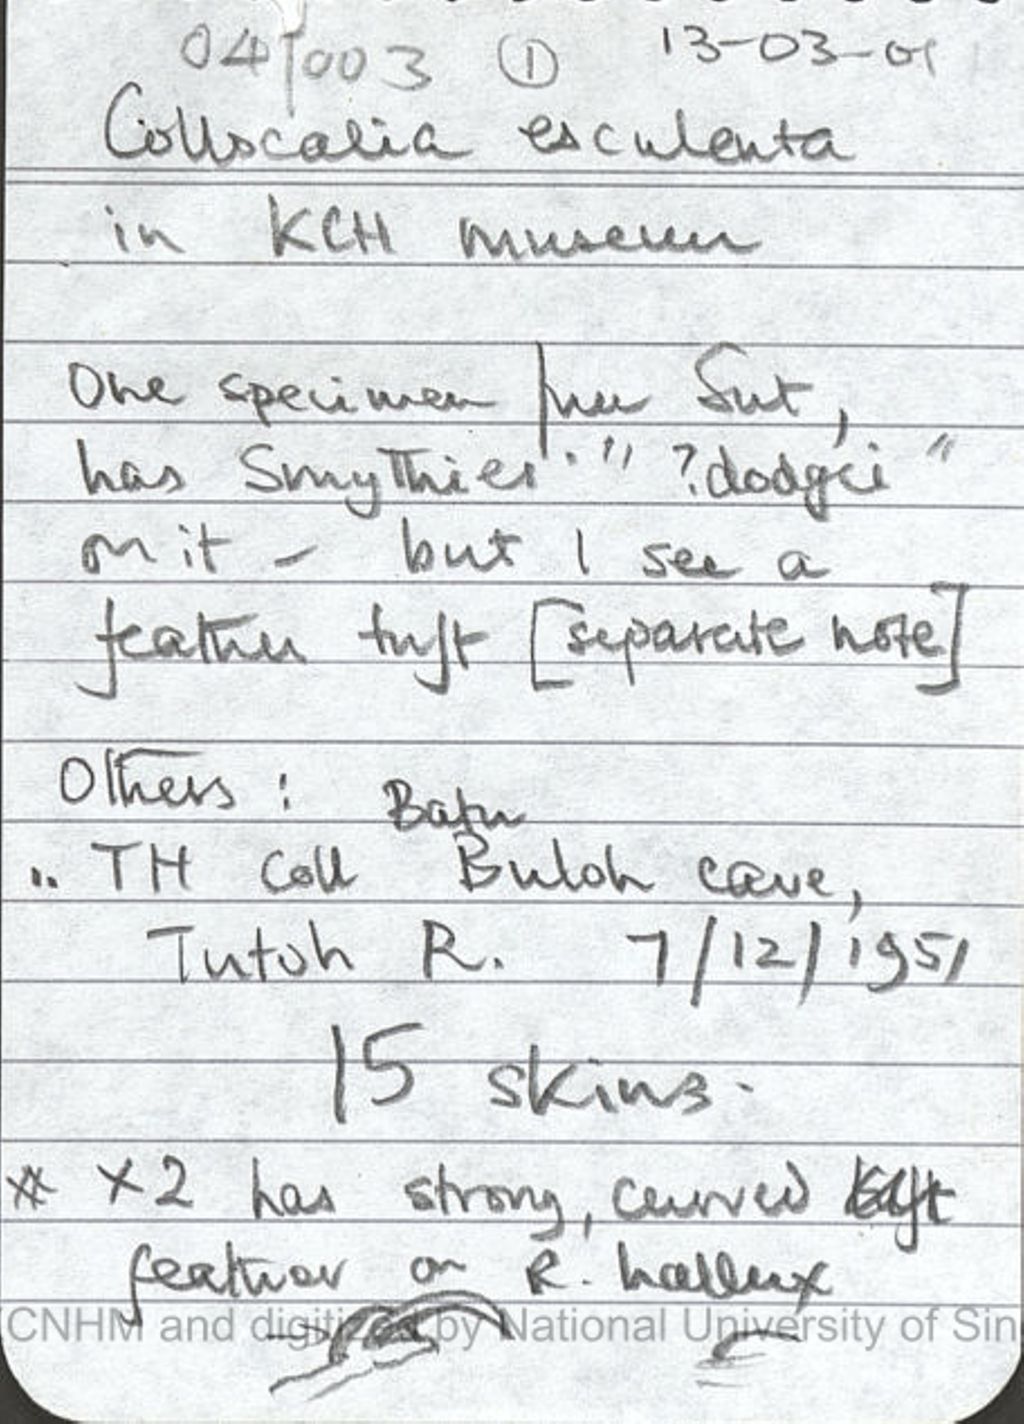 04/003 ① 13-03-01
Collocalia esculenta
in KCH museum
One specimen from Smt,
has Smythies' "?dodgei"
on it – but I see a
feather tuft [separate note]
Others : Batu
.. TH coll Buloh cave,
Tutoh R. 7/12/1951
15 skins.
* X2 has strong, curved
feather on R. hallux
CNHM and digitized by National University of Sin